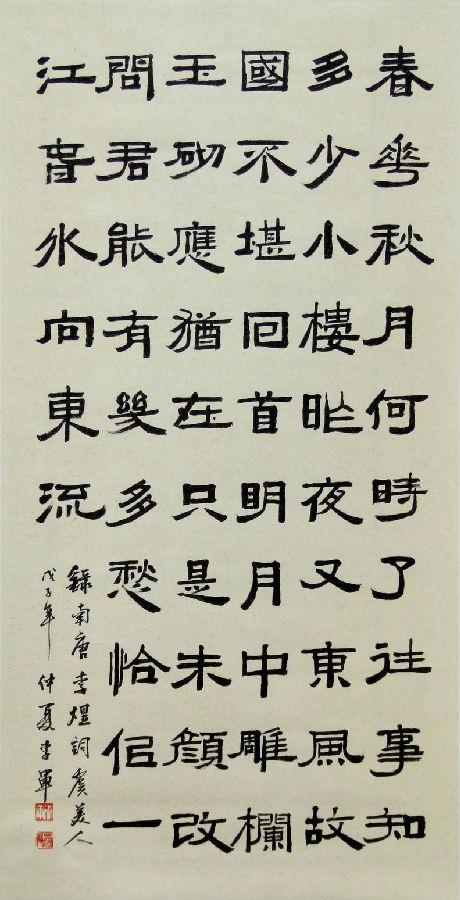 春花秋月何時了往事知
多少小樓昨夜又東風故
國不堪回首明月中雕欄
玉砌應猶在只是朱顏改
問君能有幾多愁恰佀一
江旾水向東流
錄南唐李煜詞虞美人
戊子年仲夏李軍